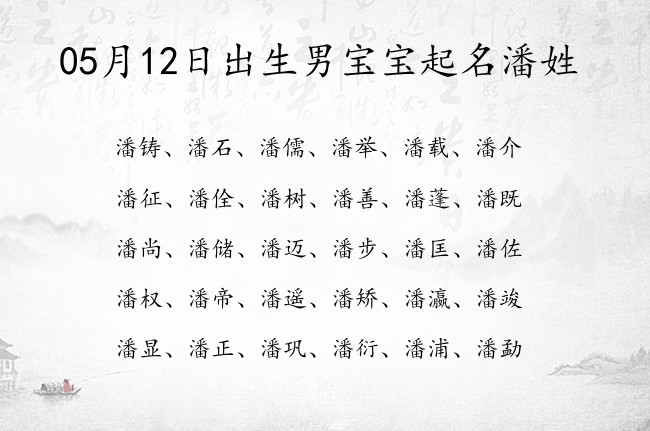 05月12日出生男宝宝起名潘姓
潘铸、潘石、潘儒、潘举、潘载、潘介
潘征、潘佺、潘树、潘善、潘蓬、潘既
潘尚、潘储、潘迈、潘步、潘匡、潘佐
潘权、潘帝、潘遥、潘矫、潘瀛、潘竣
潘显、潘正、潘巩、潘衍、潘浦、潘勐